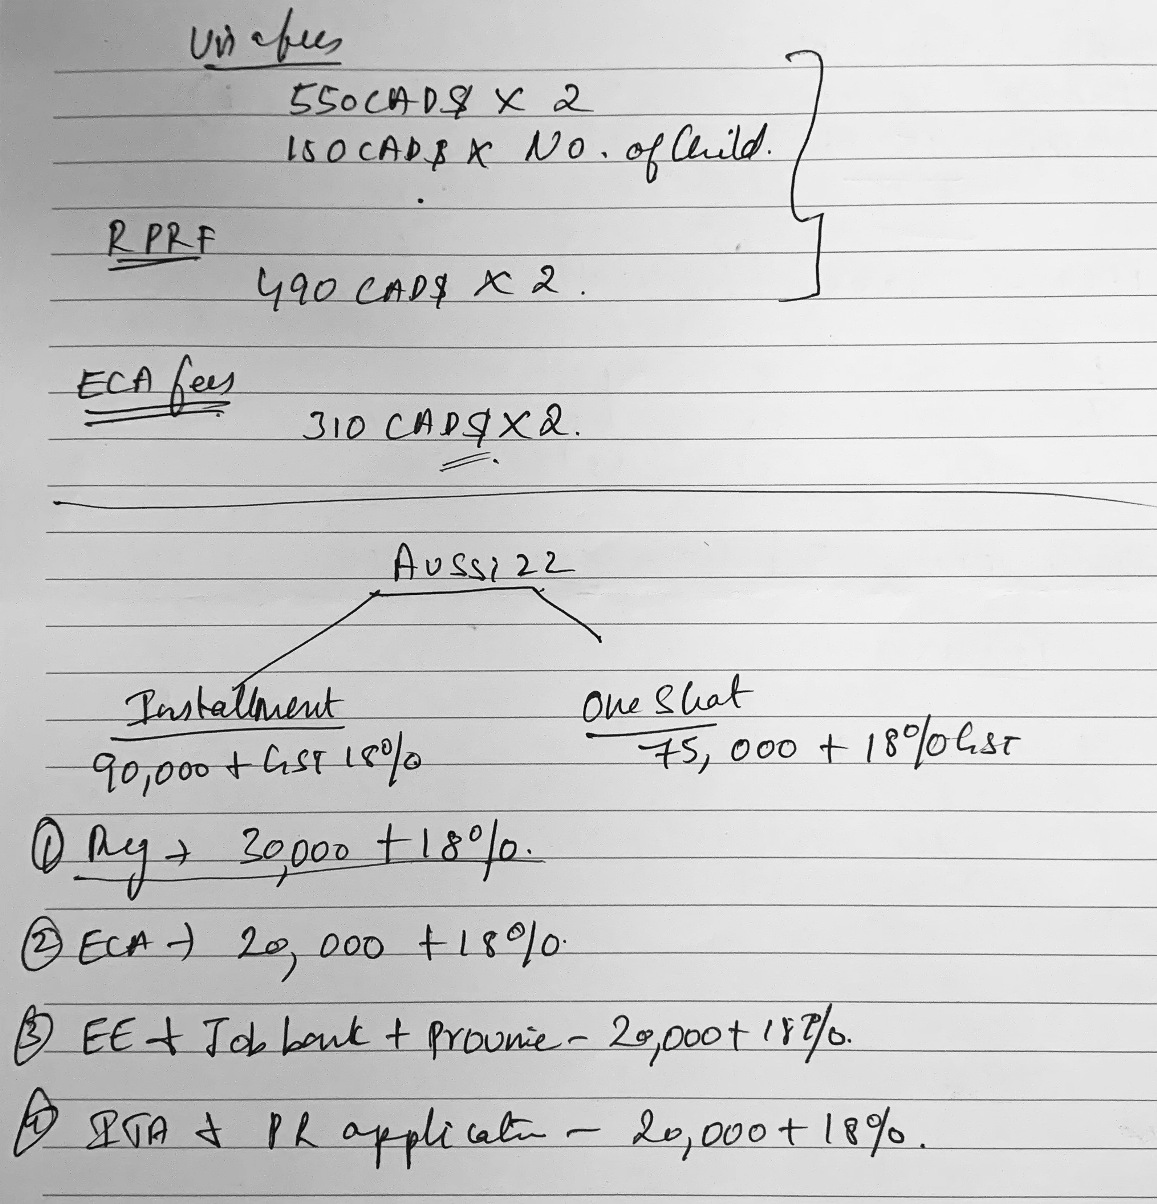 Visa fees
550 CAD$ X 2
150 CAD$ X NO. of Child.
RPRF
490 CAD$ X 2.
ECA fees
310 CAD$ X 2.
Aussizz
Installment
One Shot
90,000 + GST 18%
75,000 + 18% GST
① Reg → 30,000 + 18%.
② ECA → 20,000 + 18%.
③ EE + Job bank + Provnie - 20,000 + 18%.
④ ITA + PR application - 20,000 + 18%.